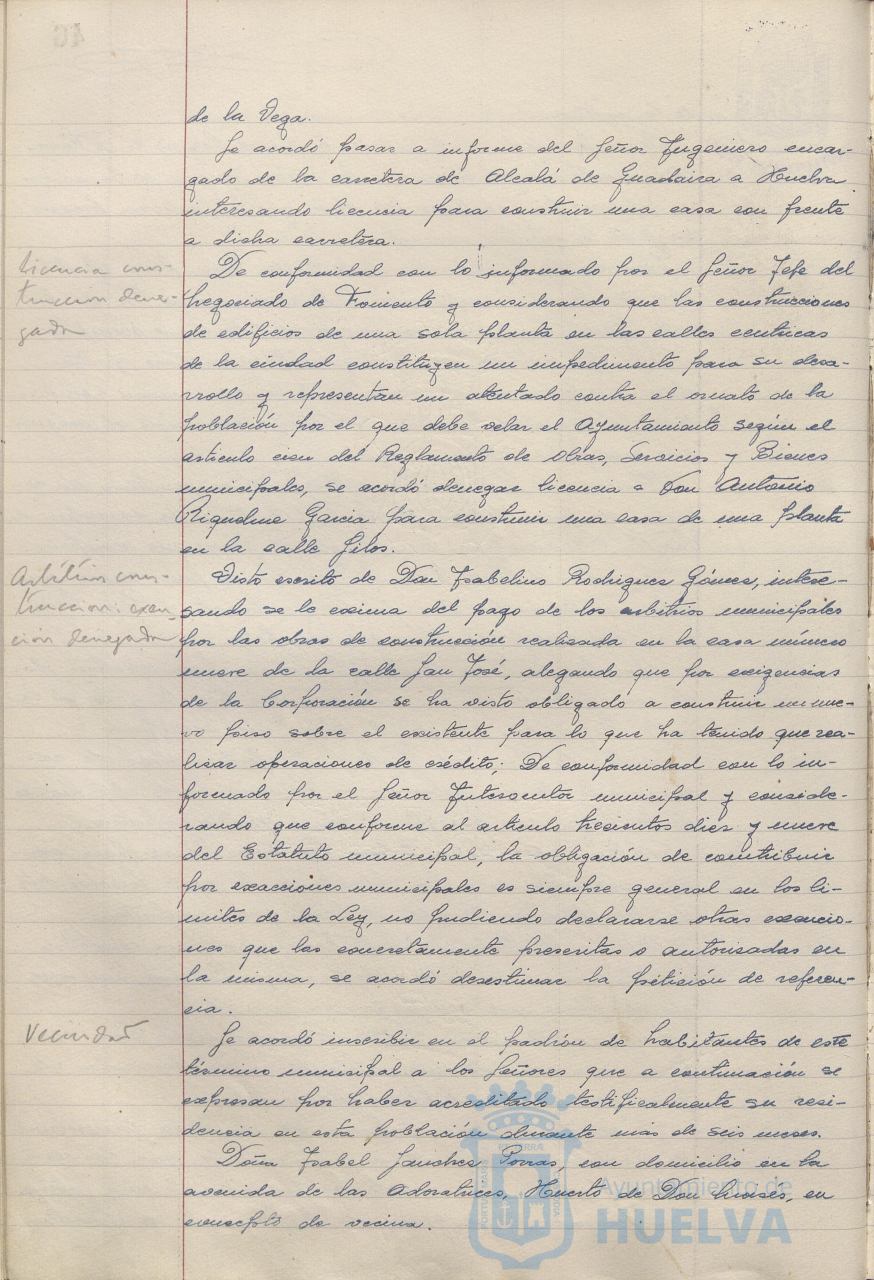 de la Vega.
Se acordó pasar a informe del Señor Ingeniero encar-
gado de la carretera de Alcalá de Guadaira a Huelva
interesando licencia para construir una casa con frente
a dicha carretera.
Licencia cons-
trucción dene-
gada
De conformidad con lo informado por el Señor Jefe del
Negociado de Fomento y considerando que las construcciones
de edificios de una sola planta en las calles centricas
de la ciudad constituyen un impedimento para su desa-
rrollo y representan un atentado contra el ornato de la
población por el que debe velar el Ayuntamiento según el
articulo cien del Reglamento de Obras, Servicios y Bienes
municipales, se acordó denegar licencia a Don Antonio
Riquelme Garcia para construir una casa de una planta
en la calle Silos.
Arbitrios cons-
trucción: exen-
ción denegada
Visto escrito de Don Isabelino Rodrigues Gómes, intere-
sando se le exima del pago de los arbitrios municipales
por las obras de construcción realizada en la casa número
nueve de la calle San José, alegando que por exigencias
de la Corporación se ha visto obligado a construir un nue-
vo piso sobre el existente para lo que ha tenido que rea-
lisar operaciones de crédito; De conformidad con lo in-
formado por el Señor Interventor municipal y conside-
rando que conforme al articulo trescientos diez y nueve
del Estatuto municipal, la obligación de contribuir
por exacciones municipales es siempre general en los li-
mites de la Ley, no pudiendo declararse otras exencio-
nes que las concretamente prescritas o autorisadas en
la misma, se acordó desestimar la petición de referen-
cia.
Vecindad
Se acordó inscribir en el padrón de habitantes de este
término municipal a los Señores que a continuación se
expresan por haber acreditado testificalmente su resi-
dencia en esta población durante más de seis meses.
Doña Isabel Sanches Porras, con domicilio en la
avenida de las Adoratrices, Huerto de Don Moisés, en
concepto de vecina.
Ayuntamiento de
HUELVA